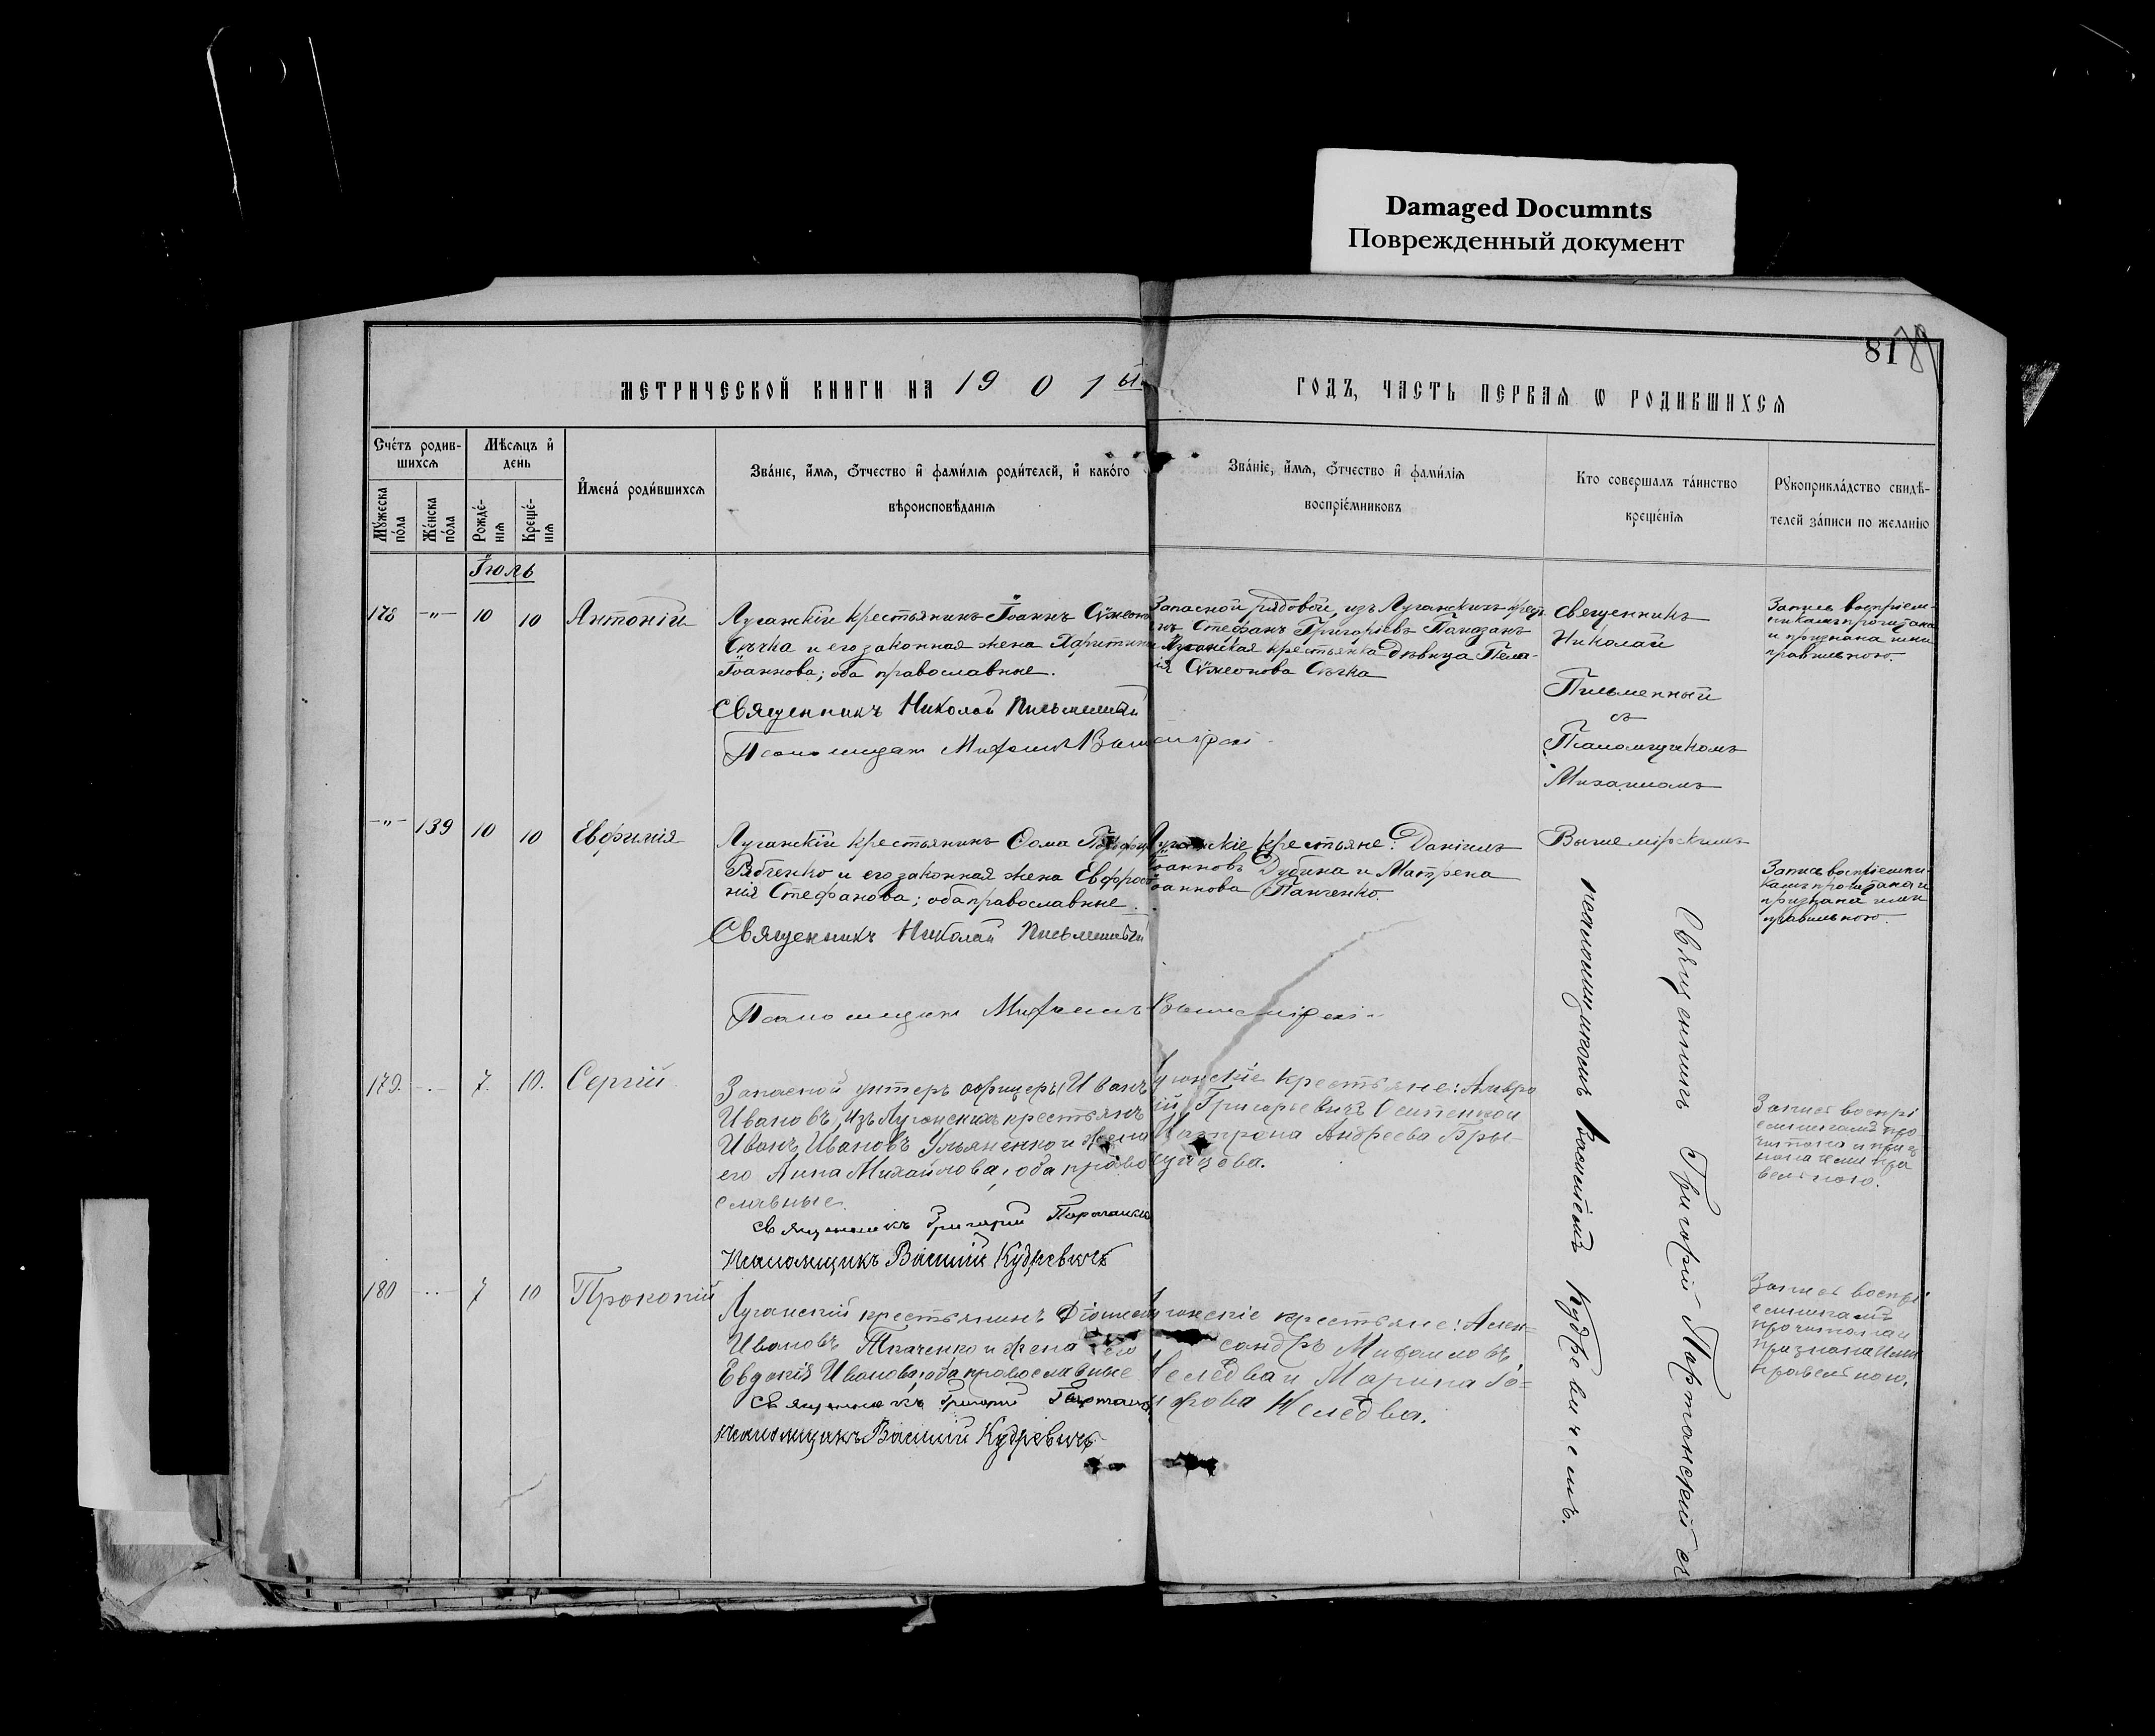 Damaged Documnts
Поврежденный документ
81
МЕТРИЧЕСКОЙ КНИГИ НА 1901 ый ГОДЪ, ЧАСТЬ ПЕРВАЯ Ѡ РОДИВШИХСЯ
Счéтъ родив-
шихсѧ
Мѣсѧцъ и҆
день
Мꙋ́жеска
по́ла
Же́нска
по́ла
Рожде́-
нїѧ
Креще́-
нїѧ
И҆мена́ роди́вшихсѧ
Зва́нїе, и҆́мѧ, ѻ҆́тчество и҆ фами́лїѧ роди́телей, и҆ како́гѡ
вѣроисповѣ́данїѧ
Зва́нїе, и҆́мѧ, ѻ҆́тчество и҆ фами́лїѧ
воспрїе́мниковъ
Кто соверша́лъ та́инство
креще́нїѧ
Рꙋкоприкла́дство свидѣ́-
телей за́писи по жела́нїю
Іюль
178 -"- 10 10 Антоній
Луганскій крестьянинъ Іоаннъ Сѵмеоно
Сѣчка и его законная жена Харитина
Іоаннова; оба православные.
Священникъ Николай Письменный
Псаломщикъ Михаилъ Вышемірскі
Запасной рядовой, изъ Луганскихъ крест
нъ Стефанъ Григоріевъ
Луганская крестьянка дѣвица Пела-
ія Сѵмеонова Сѣчка
Священникъ
Николай
Письменный
съ
Псаломщикомъ
Михаиломъ
Вышемірскимъ
Запись воспріем-
никамъ прочитана
и признана ими
правильною.
-"- 139 10 10 Евфимія
Луганскій крестьянинъ Ѳома
Рябченко и его законная жена Евфрос
нія Стефанова; оба православные.
Священникъ Николай Письменный
Псаломщикъ Михаилъ Вышемірскі
Луганскіе крестьяне: Даніилъ
Іоанновъ Дубина и Матрена
Іоаннова Панченко.
Запись воспріемни-
камъ прочитана и
признана ими
правильною.
179. 7. 10. Сергій
Запасной унтеръ офицеръ Иванъ
Ивановъ, изъ Луганскихъ крестьянъ
Иванъ Ивановъ Ульяненко и жена
его Анна Михайлова, оба право
славные.
Священникъ Григорій
Псаломщикъ Василій Кудревичъ
уганскіе крестьяне: Амвро
ій Григорьевичъ Осипенко и
Матрона Андреева Бры-
Запись воспрі
емникамъ про
читана и приз
нана ими пра
вильною.
180 7 10 Прокопій
Луганскій крестьянинъ
Ивановъ Ткаченко и жена его
Евдокія Иванова, оба православные
Священникъ Григорій
Псаломщикъ Василій Кудревичъ
уганскіе крестьяне: Алек=
сандръ Михаиловъ
Неледва и Марина
Неледва.
Запись воспрі
емникамъ
прочитана и
признана ими
правильною.
Священникъ Григорій Партанскій съ
псаломщикомъ Василіемъ Кудревичемъ.